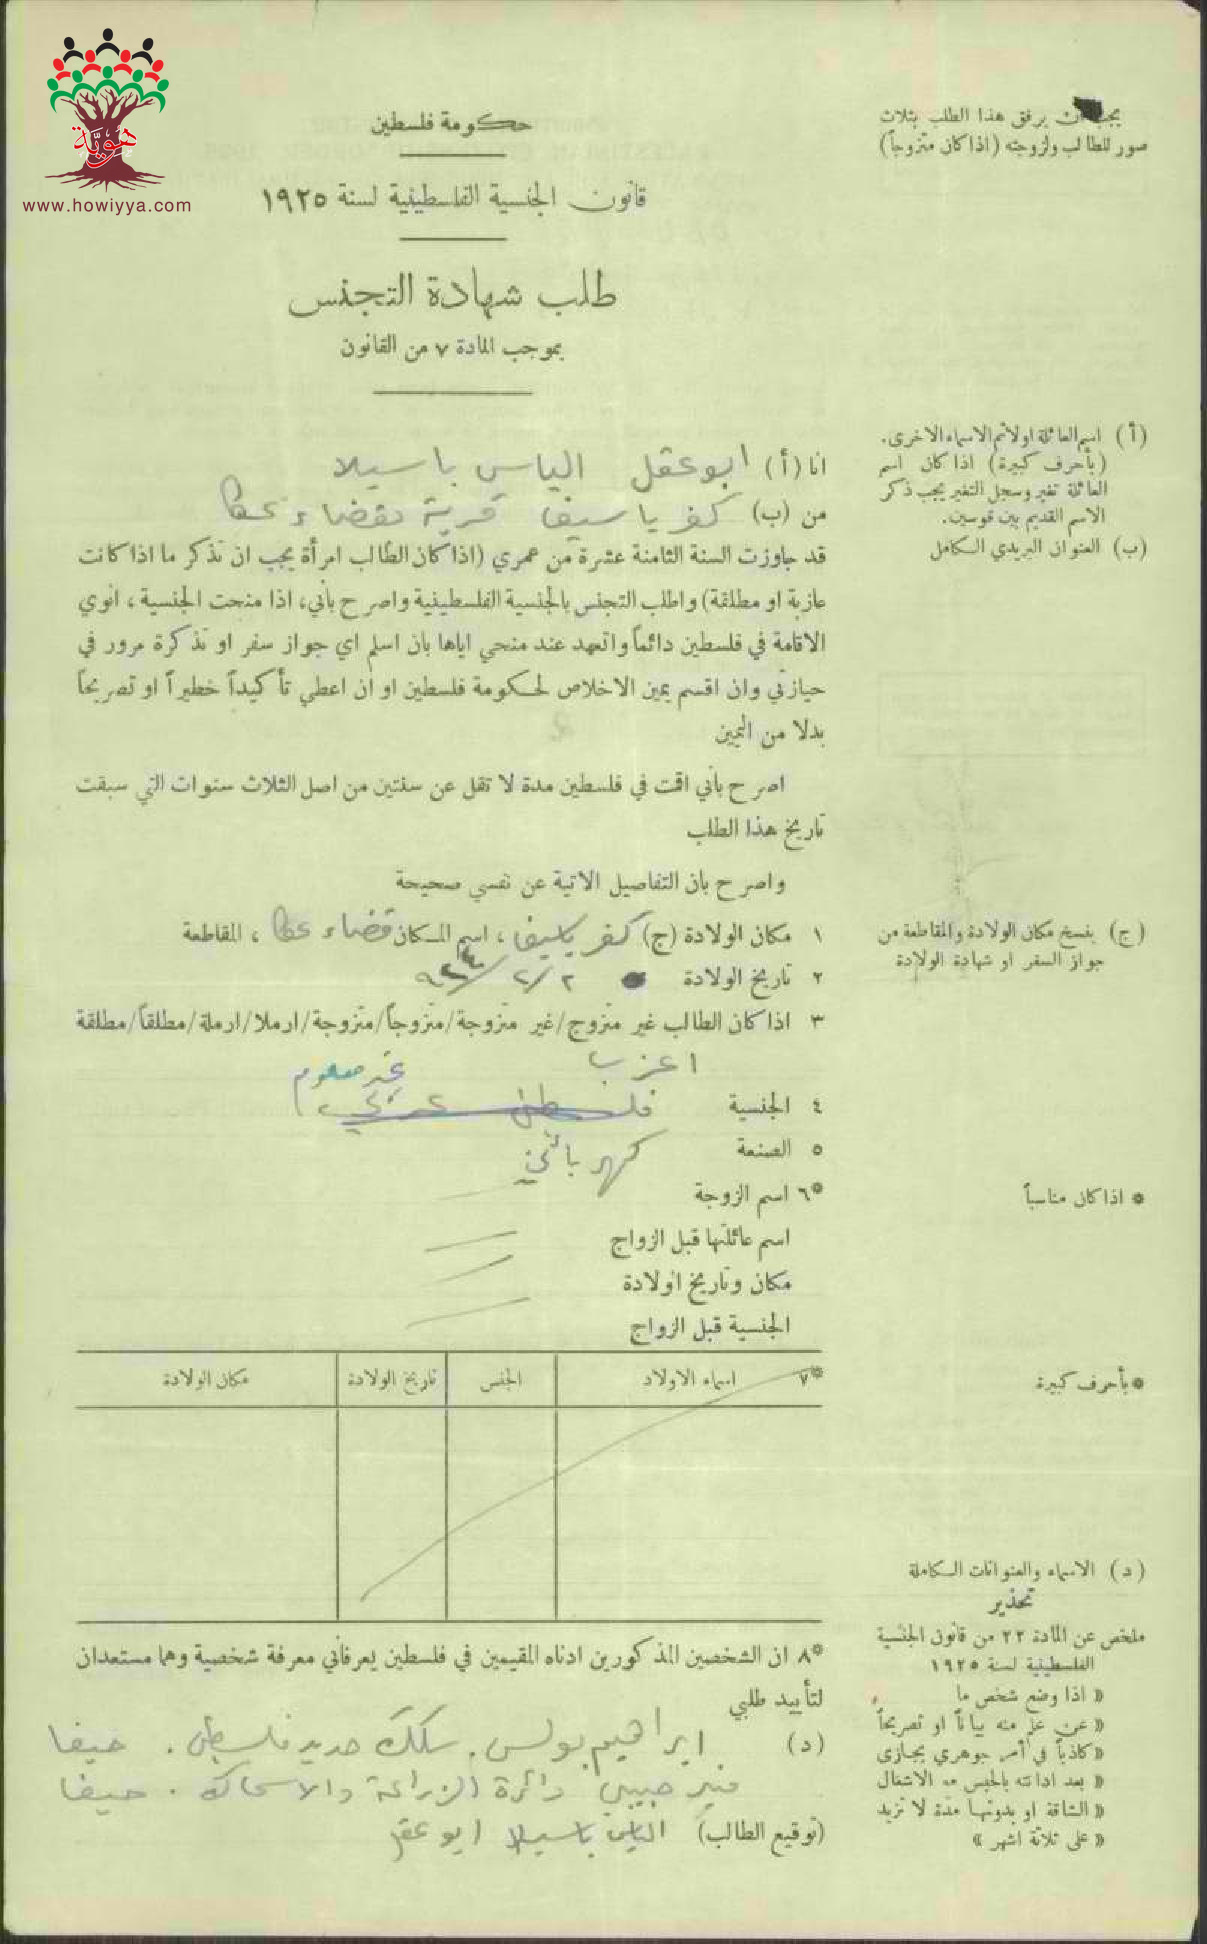 هوية
www.howiyya.com
يجب ان يرفق هذا الطلب بثلاث
صور للطالب ولزوجته (اذا كان متزوجاً)
حكومة فلسطين
قانون الجنسية الفلسطينية لسنة ١٩٢٥
طلب شهادة التجنس
بموجب المادة ٧ من القانون
(أ) اسم العائلة اولا ثم الاسماء الاخرى.
(بأحرف كبيرة) اذا كان اسم
العائلة تغير وسجل التغير يجب ذكر
الاسم القديم بين قوسين.
(ب) العنوان البريدي الكامل
انا (أ) ابو عقل الياس باسيلا
من (ب) كفر ياسيف قرية بقضاء عكا
قد جاوزت السنة الثامنة عشرة من عمري (اذا كان الطالب امرأة يجب ان تذكر ما اذا كانت
عازبة او مطلقة) واطلب التجنس بالجنسية الفلسطينية واصرح بأني، اذا منحت الجنسية، انوي
الاقامة في فلسطين دائماً واتعهد عند منحي اياها بان اسلم اي جواز سفر او تذكرة مرور في
حيازتي وان اقسم يمين الاخلاص لحكومة فلسطين او ان اعطي تأكيداً خطيراً او تصريحاً
بدلا من اليمين
اصرح بأني اقمت في فلسطين مدة لا تقل عن سنتين من اصل الثلاث سنوات التي سبقت
تاريخ هذا الطلب
واصرح بان التفاصيل الاتية عن نفسي صحيحة
(ج) بنسخ مكان الولادة والمقاطعة من
جواز السفر او شهادة الولادة
١ مكان الولادة (ج) كفر ياسيف، اسم المكان قضاء عكا، المقاطعة
٢ تاريخ الولادة ٢/٢/
٣ اذا كان الطالب غير متزوج/غير متزوجة/متزوجاً/متزوجة/ارملا/ارملة/مطلقاً/مطلقة
اعزب
غير معلوم
٤ الجنسية فلسطيني عربي
٥ الصنعة كهربائي
* اذا كان مناسباً
*٦ اسم الزوجة
اسم عائلتها قبل الزواج
مكان وتاريخ الولادة
الجنسية قبل الزواج
* بأحرف كبيرة
*٧ اسماء الاولاد الجنس تاريخ الولادة مكان الولادة
(د) الاسماء والعنوانات الكاملة
تحذير
ملخص عن المادة ٢٢ من قانون الجنسية
الفلسطينية لسنة ١٩٢٥
« اذا وضع شخص ما
« عن علم منه بياناً او تصريحاً
« كاذباً في أمر جوهري يجازى
« بعد ادانته بالحبس مع الاشغال
« الشاقة او بدونها مدة لا تزيد
« على ثلاثة اشهر »
*٨ ان الشخصين المذكورين ادناه المقيمين في فلسطين يعرفاني معرفة شخصية وهما مستعدان
لتأييد طلبي
(د) ابراهيم بولس. سكك حديد فلسطين. حيفا
منير حبيبي دائرة الزراعة والاسماك. حيفا
(توقيع الطالب) الياس باسيلا ابو عقل